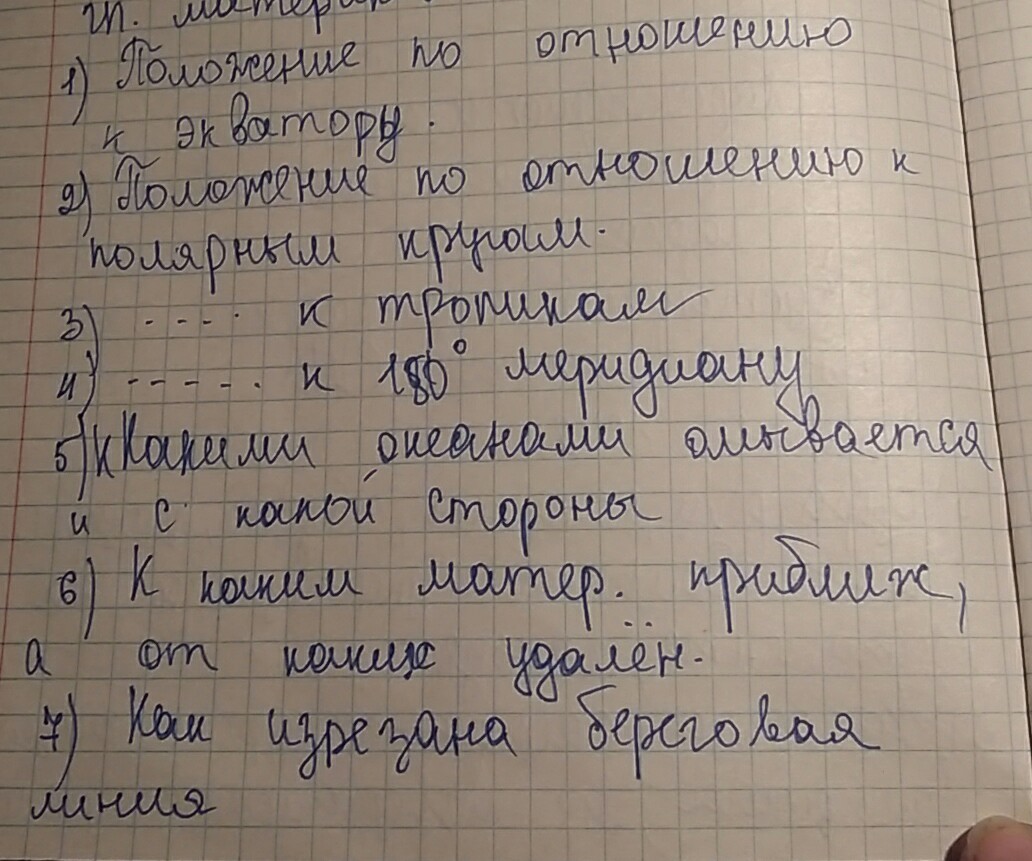 1) Положение по отношению
к экватору.
2) Положение по отношению к
полярным кругам.
3) - - - - к тропикам
4) - - - - - к 180° меридиану
5) Какими океанами омывается
и с какой стороны
6) К каким матер. приближ,
а от каких удалён.
7) Как изрезана береговая
линия